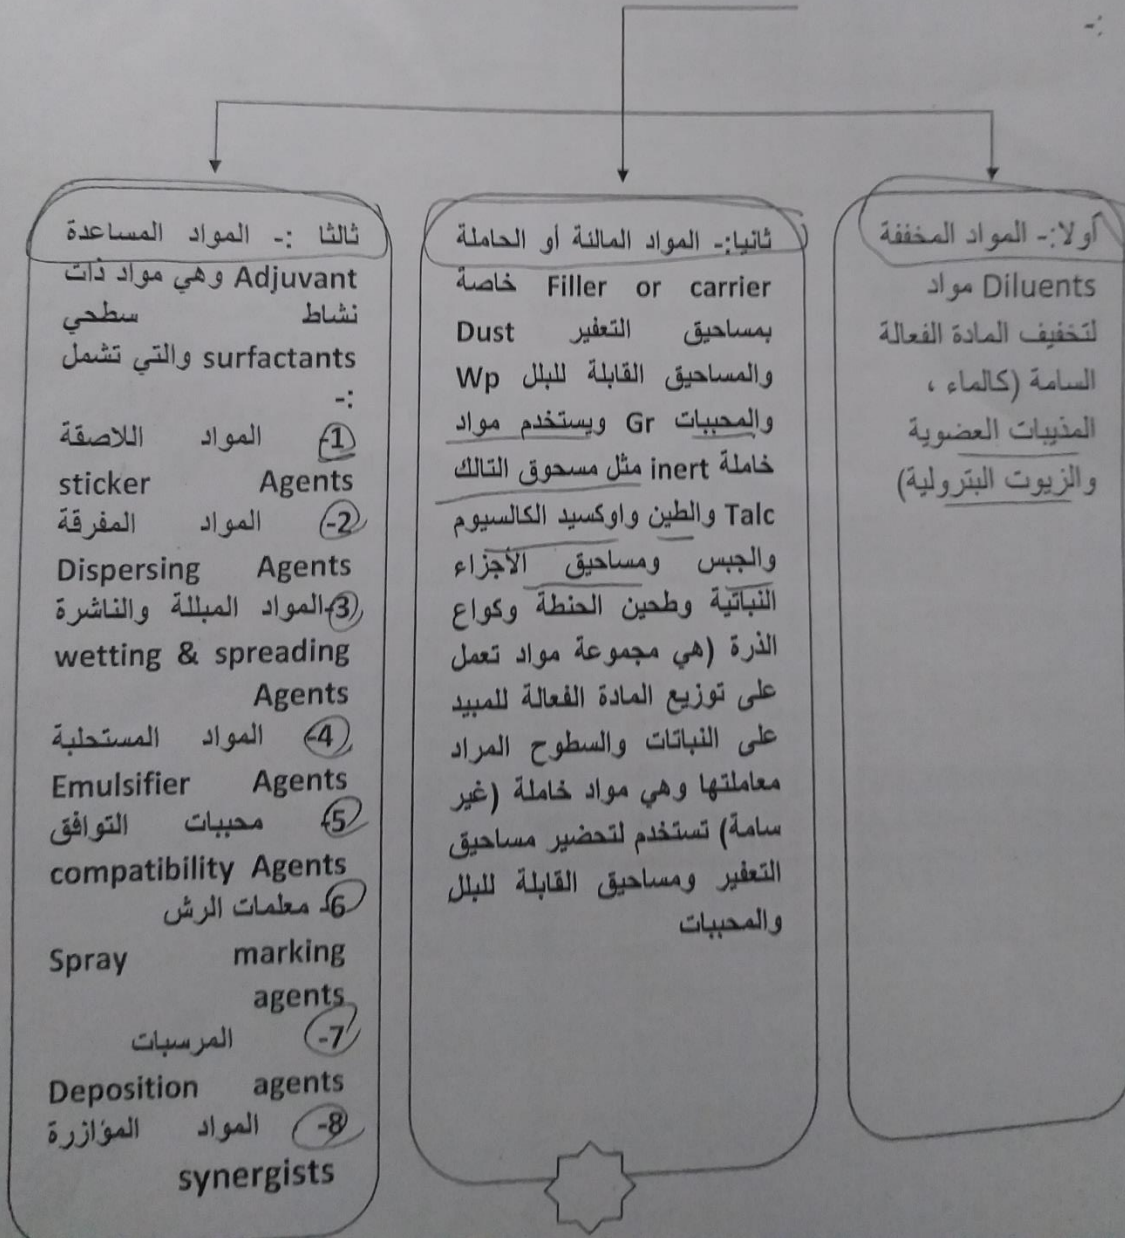 :-
أولا:- المواد المخففة
Diluents مواد
لتخفيف المادة الفعالة
السامة (كالماء ،
المذيبات العضوية
والزيوت البترولية)
ثانيا:- المواد المالئة أو الحاملة
Filler or carrier خاصة
بمساحيق التعفير Dust
والمساحيق القابلة للبلل Wp
والمحببات Gr ويستخدم مواد
خاملة inert مثل مسحوق التالك
Talc والطين واوكسيد الكالسيوم
والجبس ومساحيق الأجزاء
النباتية وطحين الحنطة وكواع
الذرة (هي مجموعة مواد تعمل
على توزيع المادة الفعالة للمبيد
على النباتات والسطوح المراد
معاملتها وهي مواد خاملة (غير
سامة) تستخدم لتحضير مساحيق
التعفير ومساحيق القابلة للبلل
والمحببات
ثالثا :- المواد المساعدة
Adjuvant وهي مواد ذات
نشاط سطحي
surfactants والتي تشمل
:-
1- المواد اللاصقة
sticker Agents
2- المواد المفرقة
Dispersing Agents
3-المواد المبللة والناشرة
wetting & spreading
Agents
4- المواد المستحلبة
Emulsifier Agents
5- محببات التوافق
compatibility Agents
6- معلمات الرش
Spray marking
agents
7- المرسبات
Deposition agents
8- المواد المؤازرة
synergists